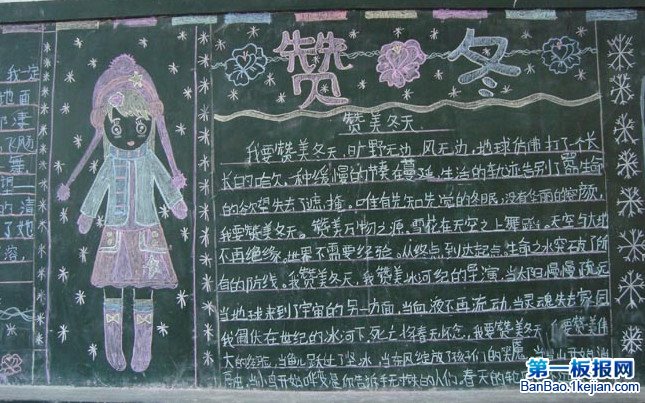 我一定
地面
飞扬
舞
的清
了她
溶,
赞 冬
赞美冬天
我要赞美冬天,旷野无边,风无边,地球仿佛打了个长
长的哈欠,种缓慢的节奏在蔓延,生活的轨迹告别了
的欲望失去了遮掩。唯有先知先觉的冬眠,没有华丽的容颜
我要赞美冬天。赞美万物之源,雪花在天空之上舞蹈。天空与大地
不再绝缘,世界不需要经验。从终点到达起点,生命之水突破了所
有的防线。我赞美冬天,我赞美冰河纪的导演,当太阳慢慢疏远
当地球来到了宇宙的另一方面,当血液不再流动,当灵魂失去家园
我俯伏在世纪的冰河下,死亡将春天怀念,我要赞美冬天,我要赞美伟
大的 当鱼儿跃出了坚冰,当东风绽放了孩子们的笑
当小鸟开始 告诉 的人们,春天的
第一板报网
BanBao.1kejian.com